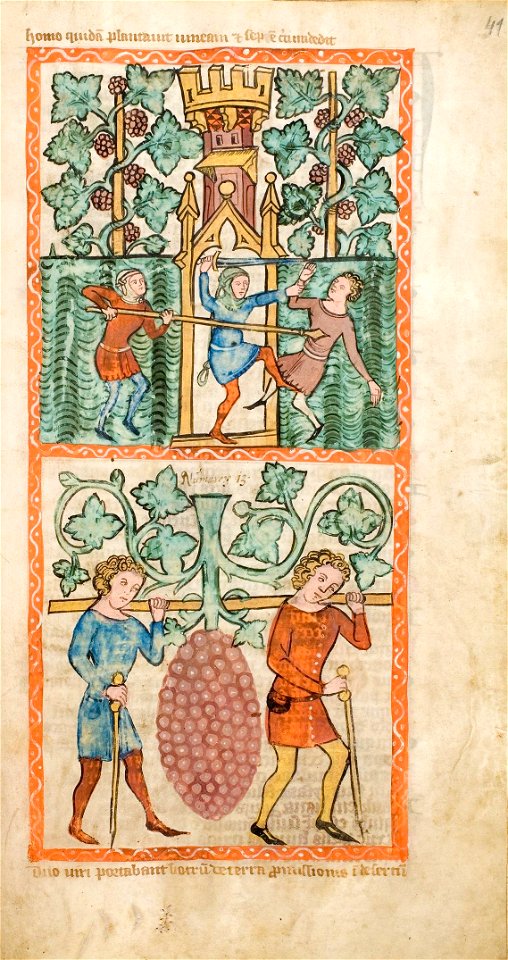 homo quidā plantavit vineam & sepē cīcūdedit
41
Numerj 13
Duo viri portabant botrū de terra p̄missionis ī desertū